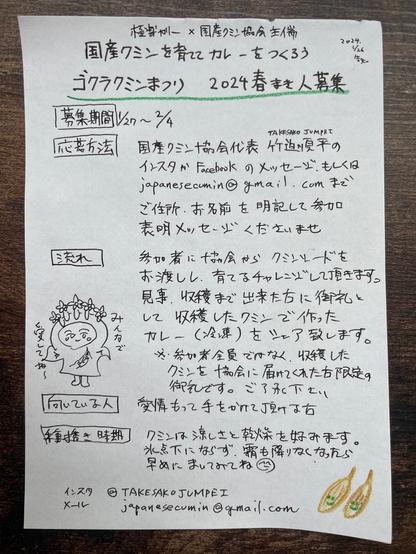 極楽カリー × 国産クミン協会 主催
2024.
1/26
国産クミンを育ててカレーをつくろう
ゴクラクミンまつり 2024春まき人募集
募集期間 1/27〜2/4
応募方法
国産クミン協会代表 竹迫順平の
TAKESAKO JUMPEI
インスタか Facebook のメッセージ、もしくは
japanesecumin@gmail.comまで
ご住所、お名前を明記して参加
表明メッセージくださいませ
流れ
参加者に協会からクミンシードを
お渡しし、育てるチャレンジして頂きます。
見事、収穫まで出来た方に御礼と
して収穫したクミンで作った
カレー(冷凍)をシェア致します。
※参加者全員ではなく、収穫した
クミンを協会に届けてくれた方限定の
御礼です。ご了承下さい
みんなで
愛してね〜
向いている人
愛情もって手をかけて頂ける方
種撒き時期
クミンは涼しさと乾燥を好みます。
氷点下にならず、霜も降りなくなったら
早めにまいてみてね
インスタ @TAKESAKOJUMPEI
メール japanesecumin@gmail.com